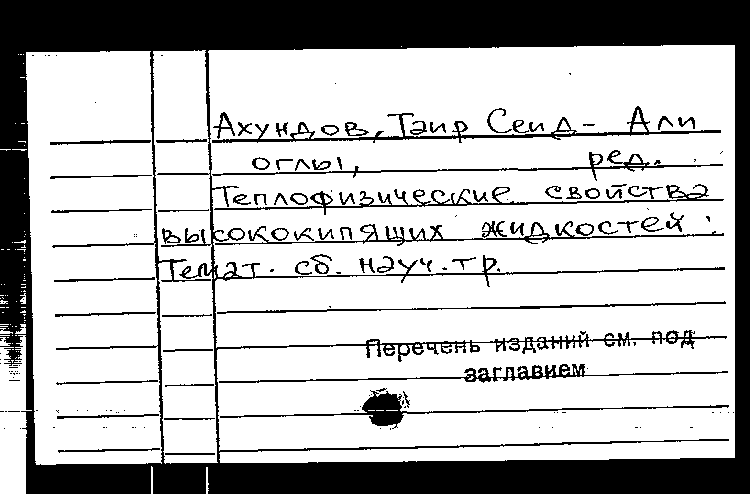 Ахундов, Таир Сеид - Али
оглы, ред.
Теплофизические свойства
высококипящих жидкостей :
Темат. сб. науч. тр.
Перечень изданий см. под
заглавием